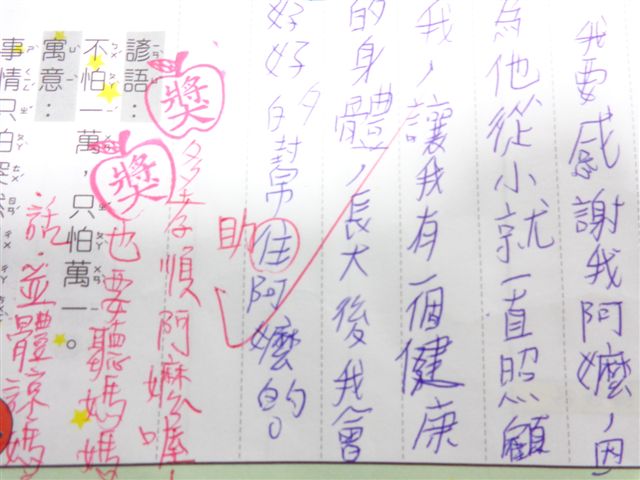 我要感謝我阿嬤，因
為他從小就一直照顧
我，讓我有一個健康
的身體，長大後我會
好好的幫住阿嬤的。
助
獎
獎
孝順阿嬤喔！
也要聽媽媽
話，並體諒媽
諺語：
不怕一萬，只怕萬一。
寓意：
事情只怕